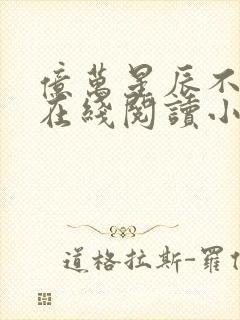 億萬星辰不
在綫閱讀小
道格拉斯-羅